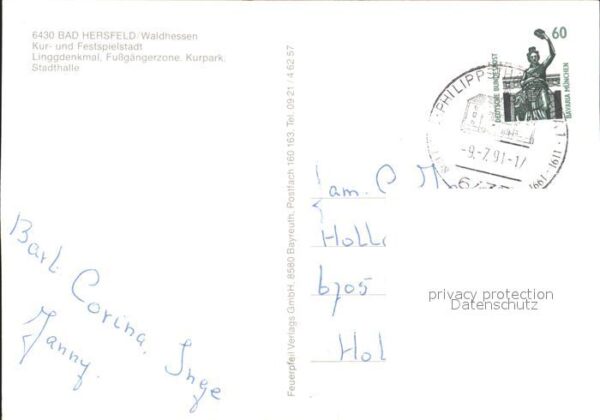 6430 BAD HERSFELD/Waldhessen
Kur- und Festspielstadt
Linggdenkmal, Fußgängerzone, Kurpark,
Stadthalle
Feuerpfeil Verlags GmbH, 8580 Bayreuth, Postfach 160 163, Tel. 09 21 / 4 62 57
60
DEUTSCHE BUNDESPOST
BAVARIA MÜNCHEN
PHILIPP
-9.-7.91-17
1661 · 1991
Fam. C
Holl
6705
Hol
privacy protection
Datenschutz
Barb. Corina, Inge
Janny.